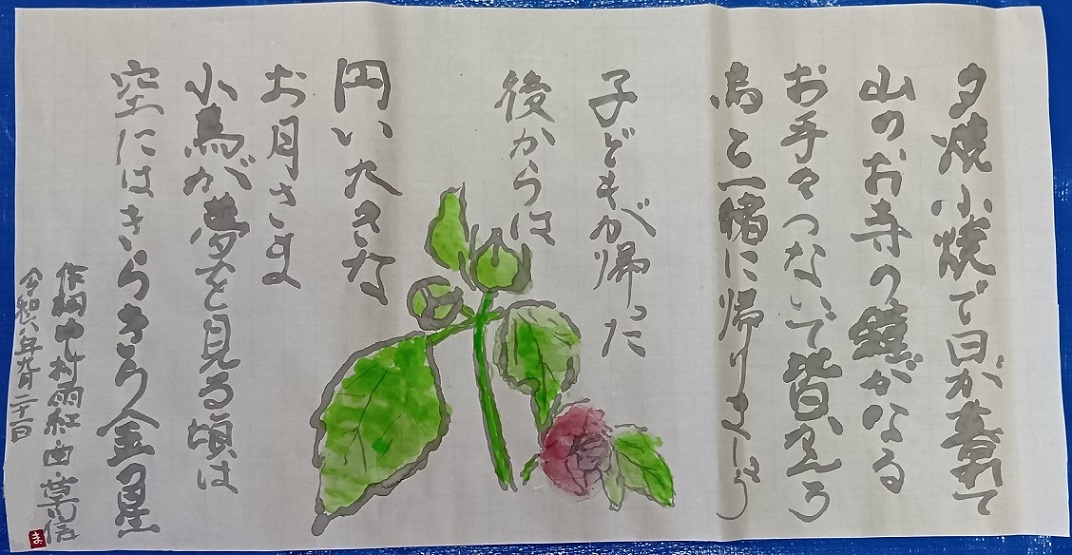 夕焼小焼で日が暮れて
山のお寺の鐘がなる
お手々つないで皆かえろ
烏と一緒に帰りましょう
子どもが帰った
後からは
円い大きな
お月さま
小鳥が夢を見る頃は
空にはきらきら金の星
作詞中村雨紅・曲・草川信
令和六年九月二十一日
ま